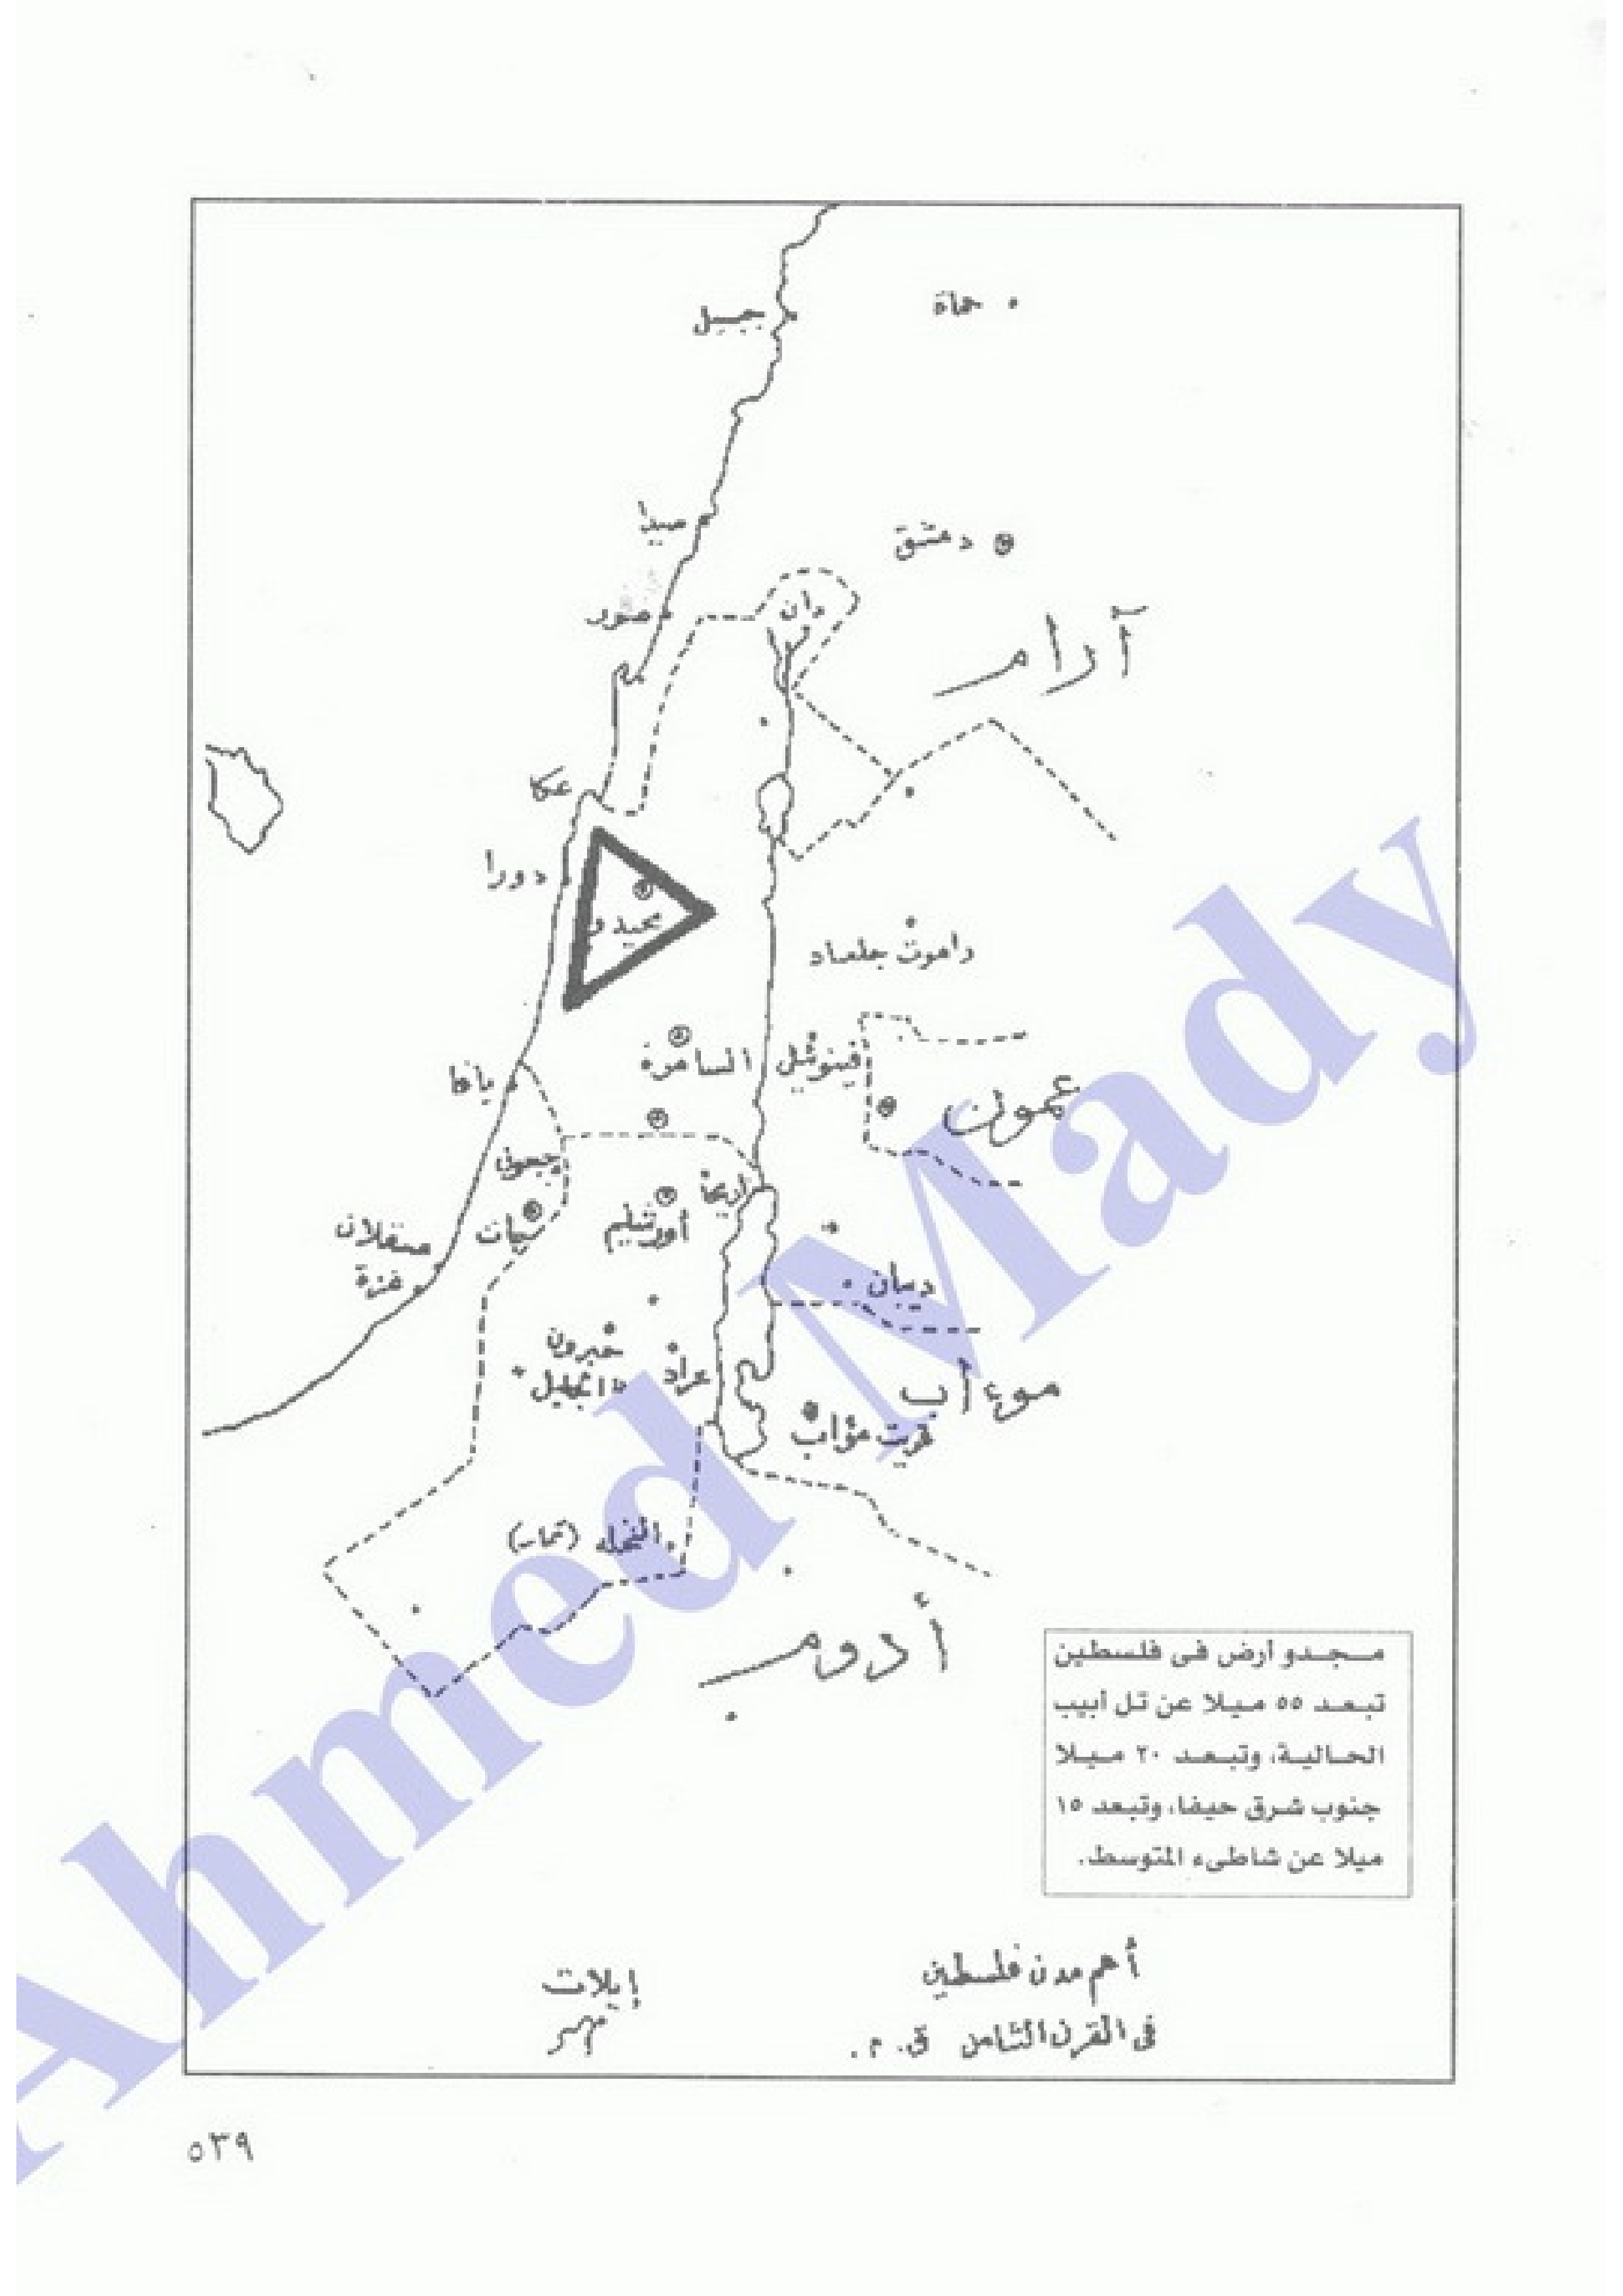 جبيل
حماة
صيدا
دمشق
صور
دان
آرام
عكا
دورا
مجيدو
راموت جلعاد
السامرة
فينوئيل
يافا
عمون
جبعون
اريحا
أورشليم
عسقلان
غزة
ديبان
حبرون
الخليل
عراد
موءاب
قريت مؤاب
النخله (تمار)
أدوم
مـجـدو أرض فى فلسطين
تبـعـد ٥٥ مـيـلا عن تل أبيب
الحـالية، وتبـعـد ٢٠ مـيـلا
جنوب شرق حيفا، وتبعد ١٥
ميلا عن شاطىء المتوسط.
إيلات
أهم مدن فلسطين
فى القرن الثامن ق. م.
٥٣٩
Ahmed Mady